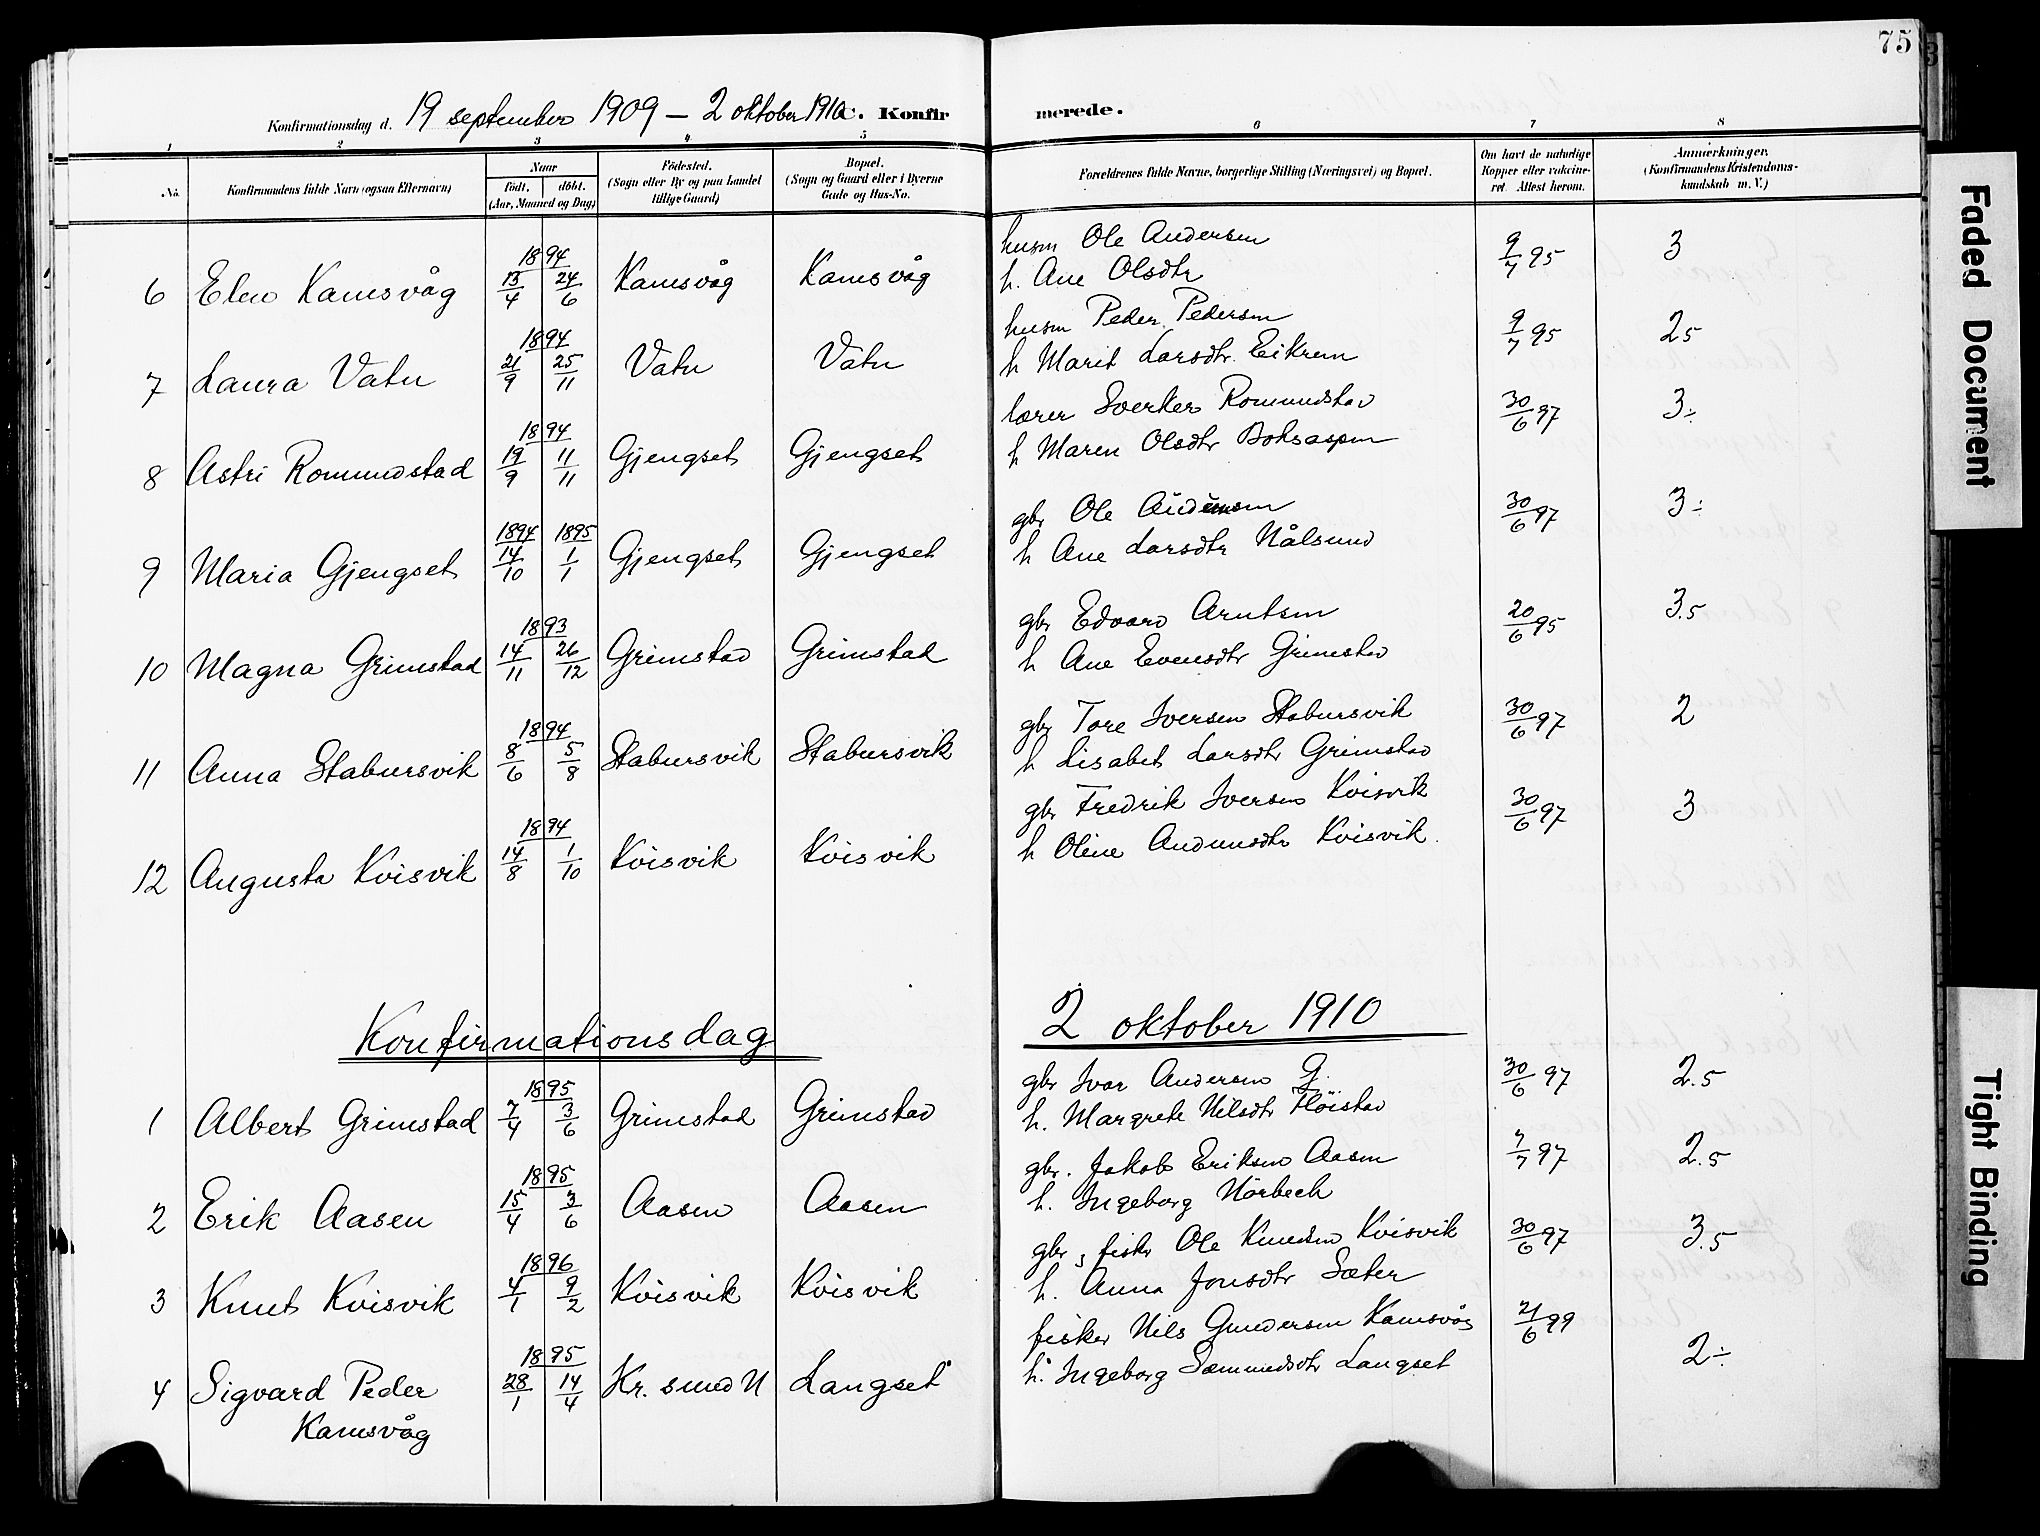 75
Konfirmationsdag d. 19 september 1909 – 2 oktober 1910 C. Konfirmerede.
1 2 3 4 5 6 7 8
No. Konfirmandens fulde Navn (ogsaa Efternavn) Naar født. døbt. (Aar, Maaned og Dag) Fødested. (Sogn eller By og paa Landet tillige Gaard) Bopæl. (Sogn og Gaard eller i Byerne Gade og Hus-No. Forældrenes fulde Navne, borgerlige Stilling (Næringsvei) og Bopæl. Om havt de naturlige Kopper eller vaccineret. Attest herom. Anmærkninger. (Konfirmandens Kristendomskundskab m. V.)
6 Elen Kamsvåg 1894 13/4 24/6 Kamsvåg Kamsvåg husm Ole Andersen 9/7 95 3
h. Ane Olsdtr
7 Laura Vatn 1894 21/9 25/11 Vatn Vatn husm Peder Pedersen 9/7 95 25
h Marit Larsdtr Eikrem
8 Astri Romundstad 1894 19/9 11/11 Gjengset Gjengset lærer Sverker Romundstad 30/6 97 3÷
h Maren Olsdtr Boksaspen
9 Maria Gjengset 1894 14/10 1895 1/1 Gjengset Gjengset gbr Ole Audunsen 30/6 97 3÷
h Ane Larsdtr Nålsund
10 Magna Grimstad 1893 14/11 26/12 Grimstad Grimstad gbr Edvard Arntsen 20/6 95 3.5
h Ane Evensdtr Grimstad
11 Anna Stabursvik 1894 8/6 5/8 Stabursvik Stabursvik gbr Tore Iversen Stabursvik 30/6 97 2
h Lisabet Larsdtr Grimstad
12 Augusta Kvisvik 1894 14/8 1/10 Kvisvik Kvisvik gbr Fredrik Iversen Kvisvik 30/6 97 3
h Oline Audunsdtr Kvisvik.
Konfirmationsdag 2 oktober 1910
1 Albert Grimstad 1895 7/4 3/6 Grimstad Grimstad gbr Ivar Andersen G. 30/6 97 2.5
h. Margrete Nilsdtr Høistad
2 Erik Aasen 1895 15/4 3/6 Aasen Aasen gbr. Jakob Eriksen Aasen 7/7 97 2.5
h. Ingeborg Nörbech
3 Knut Kvisvik 1896 4/1 9/2 Kvisvik Kvisvik gbr, fisker Ole Knudsen Kvisvik 30/6 97 3.5
h. Anna Jonsdtr Sæter
4 Sigvard Peder 1895 28/1 14/4 Kr. sund N Langset fisker Nils Gundersen Kamsvåg 21/6 99 2÷
Kamsvåg h. Ingeborg Sæmundsdtr Langset
Faded Document
Tight Binding